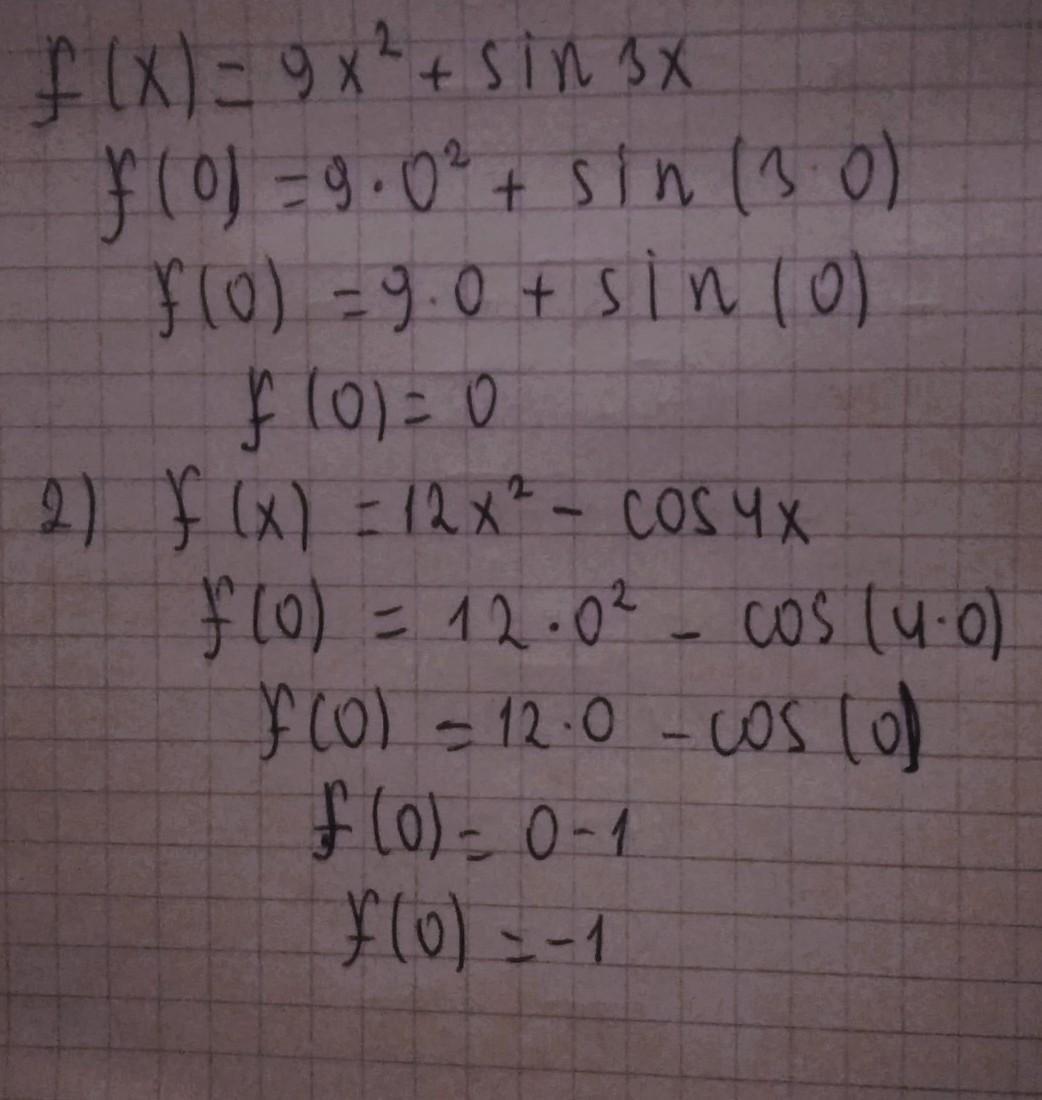 f(x) = 9x² + sin 3x
f(0) = 9·0² + sin (3·0)
f(0) = 9·0 + sin (0)
f(0) = 0
2) f(x) = 12x² - cos 4x
f(0) = 12·0² - cos (4·0)
f(0) = 12·0 - cos (0)
f(0) = 0-1
f(0) = -1